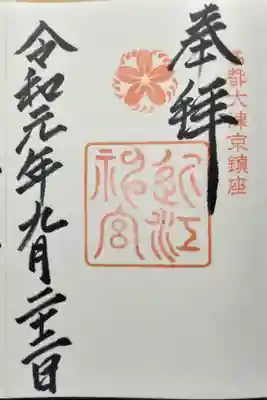 古都大津京鎮座
奉拝
近江神宮
令和元年九月二十二日